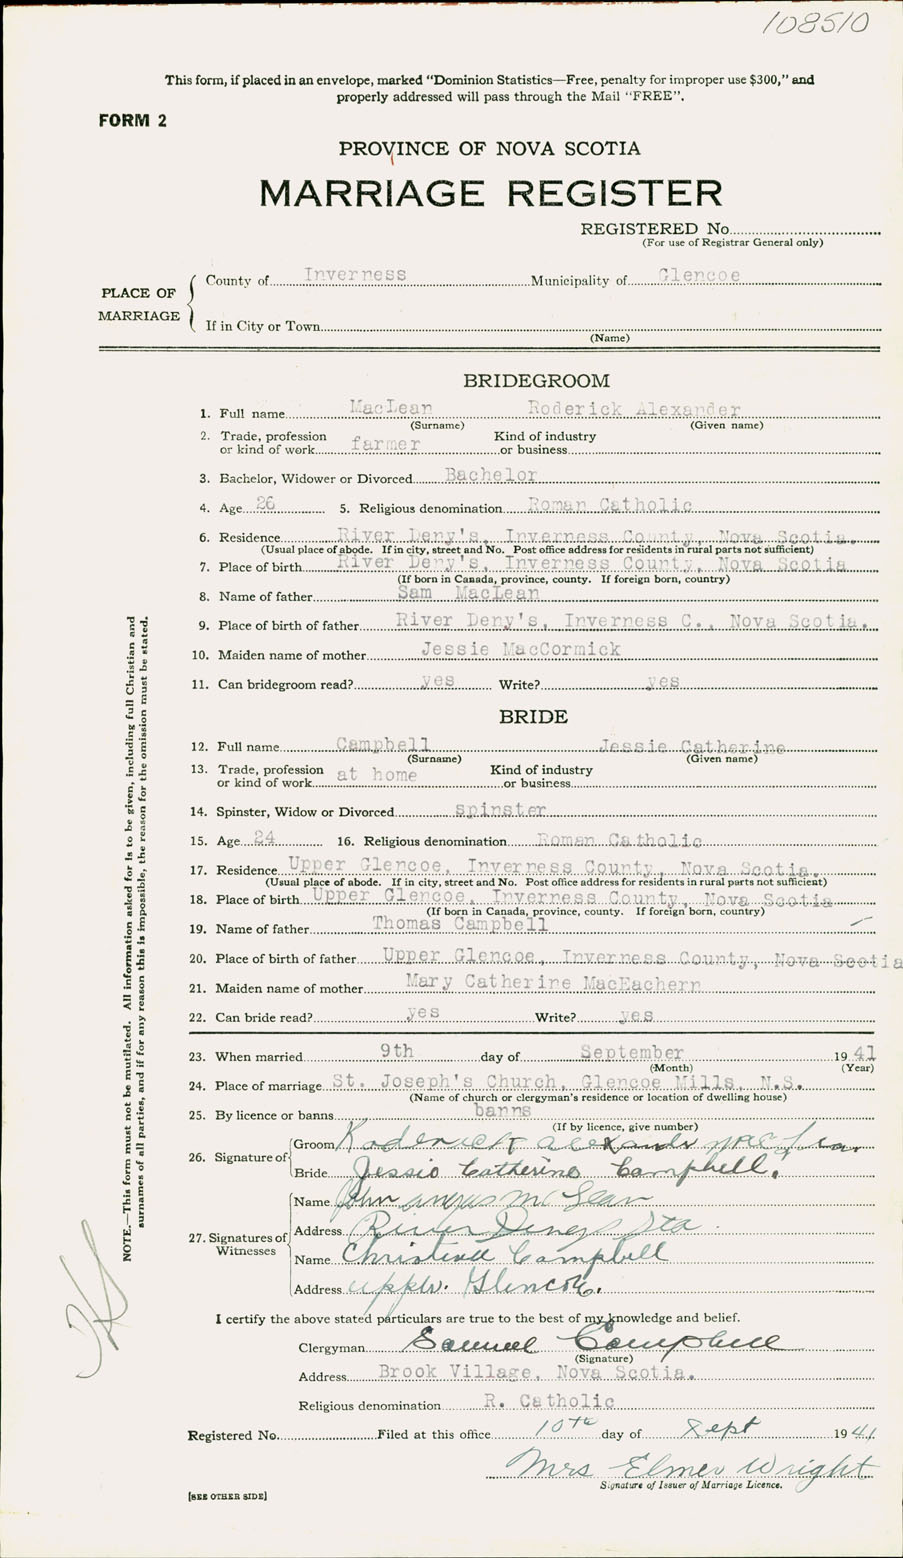 108510
This form, if placed in an envelope, marked "Dominion Statistics—Free, penalty for improper use $300," and
properly addressed will pass through the Mail "FREE".
FORM 2
PROVINCE OF NOVA SCOTIA
MARRIAGE REGISTER
REGISTERED No.
(For use of Registrar General only)
PLACE OF MARRIAGE
County of Inverness Municipality of Glencoe
If in City or Town
(Name)
BRIDEGROOM
1. Full name MacLean Roderick Alexander
(Surname) (Given name)
2. Trade, profession or kind of work farmer Kind of industry or business
3. Bachelor, Widower or Divorced Bachelor
4. Age 26 5. Religious denomination Roman Catholic
6. Residence River Deny's, Inverness County, Nova Scotia.
(Usual place of abode. If in city, street and No. Post office address for residents in rural parts not sufficient)
7. Place of birth River Deny's, Inverness County, Nova Scotia
(If born in Canada, province, county. If foreign born, country)
8. Name of father Sam MacLean
9. Place of birth of father River Deny's, Inverness C., Nova Scotia.
10. Maiden name of mother Jessie MacCormick
11. Can bridegroom read? yes Write? yes
BRIDE
12. Full name Campbell Jessie Catherine
(Surname) (Given name)
13. Trade, profession or kind of work at home Kind of industry or business
14. Spinster, Widow or Divorced spinster
15. Age 24 16. Religious denomination Roman Catholic
17. Residence Upper Glencoe, Inverness County, Nova Scotia.
(Usual place of abode. If in city, street and No. Post office address for residents in rural parts not sufficient)
18. Place of birth Upper Glencoe, Inverness County, Nova Scotia
(If born in Canada, province, county. If foreign born, country)
19. Name of father Thomas Campbell
20. Place of birth of father Upper Glencoe, Inverness County, Nova Scotia
21. Maiden name of mother Mary Catherine MacEachern
22. Can bride read? yes Write? yes
23. When married 9th day of September 1941
(Month) (Year)
24. Place of marriage St. Joseph's Church, Glencoe Mills, N.S.
(Name of church or clergyman's residence or location of dwelling house)
25. By licence or banns banns
(If by licence, give number)
26. Signature of
Groom Roderick Alexander MacLean
Bride Jessie Catherine Campbell.
27. Signatures of Witnesses
Name John Angus McLean
Address River Denys Sta.
Name Christina Campbell
Address upper. Glencoe.
I certify the above stated particulars are true to the best of my knowledge and belief.
Clergyman Samuel Campbell
(Signature)
Address Brook Village, Nova Scotia.
Religious denomination R. Catholic
Registered No. Filed at this office 10th day of Sept 1941
Mrs Elmer Wright
Signature of Issuer of Marriage Licence.
[SEE OTHER SIDE]
NOTE.—This form must not be mutilated. All information asked for is to be given, including full Christian and
surnames of all parties, and if for any reason this is impossible, the reason for the omission must be stated.